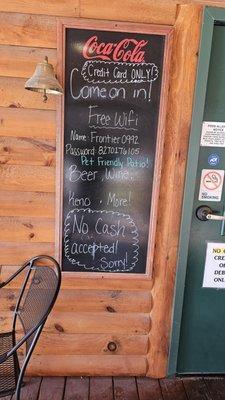 Coca-Cola
Credit Card ONLY!
Come on in!
Free Wifi
Name: Frontier 0992
Password: 8270176105
Pet Friendly Patio!
Beer, Wine,
Keno & More!
No Cash
accepted!
Sorry!
ONLY